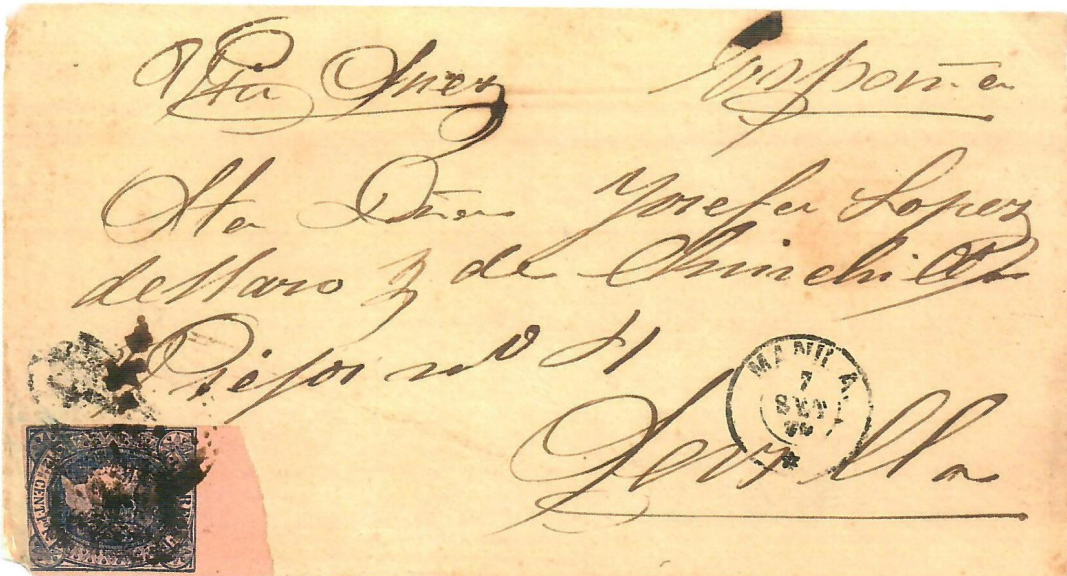 Via Suez España
Sta Dña Josefa Lopez
de Haro y de Chinchilla
nº 11
Sevilla
MANILA
7
SET
CENT.